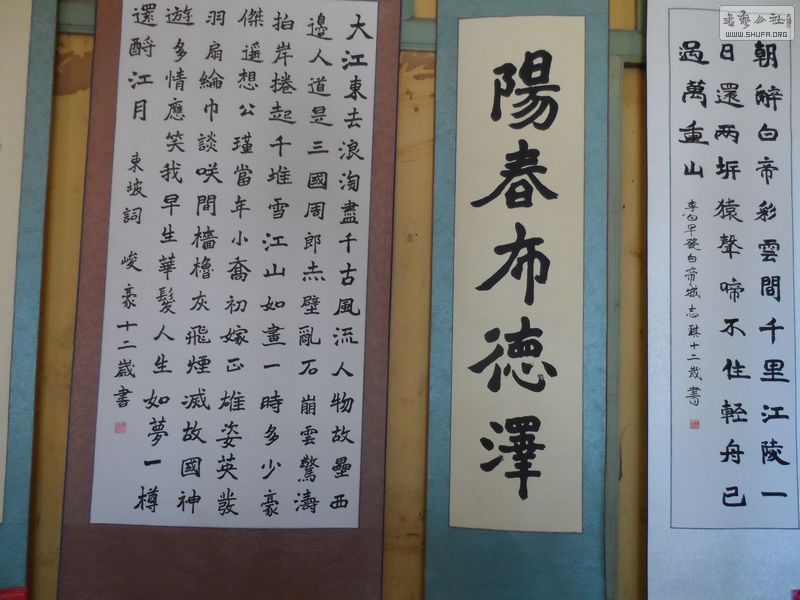 書藝公社
WWW.SHUFA.ORG
朝辭白帝彩雲間千里江陵一
日還两岸猿聲啼不住輕舟已
過萬重山
李白早發白帝城志騏十二歲書
陽春布德澤
大江東去浪淘盡千古風流人物故壘西
邊人道是三國周郎赤壁亂石崩雲驚濤
拍岸捲起千堆雪江山如畫一時多少豪
傑遥想公瑾當年小喬初嫁正雄姿英發
羽扇綸巾談咲間檣櫓灰飛煙滅故國神
遊多情應笑我早生華髮人生如夢一樽
還酹江月
東坡詞 峻豪十二歲書